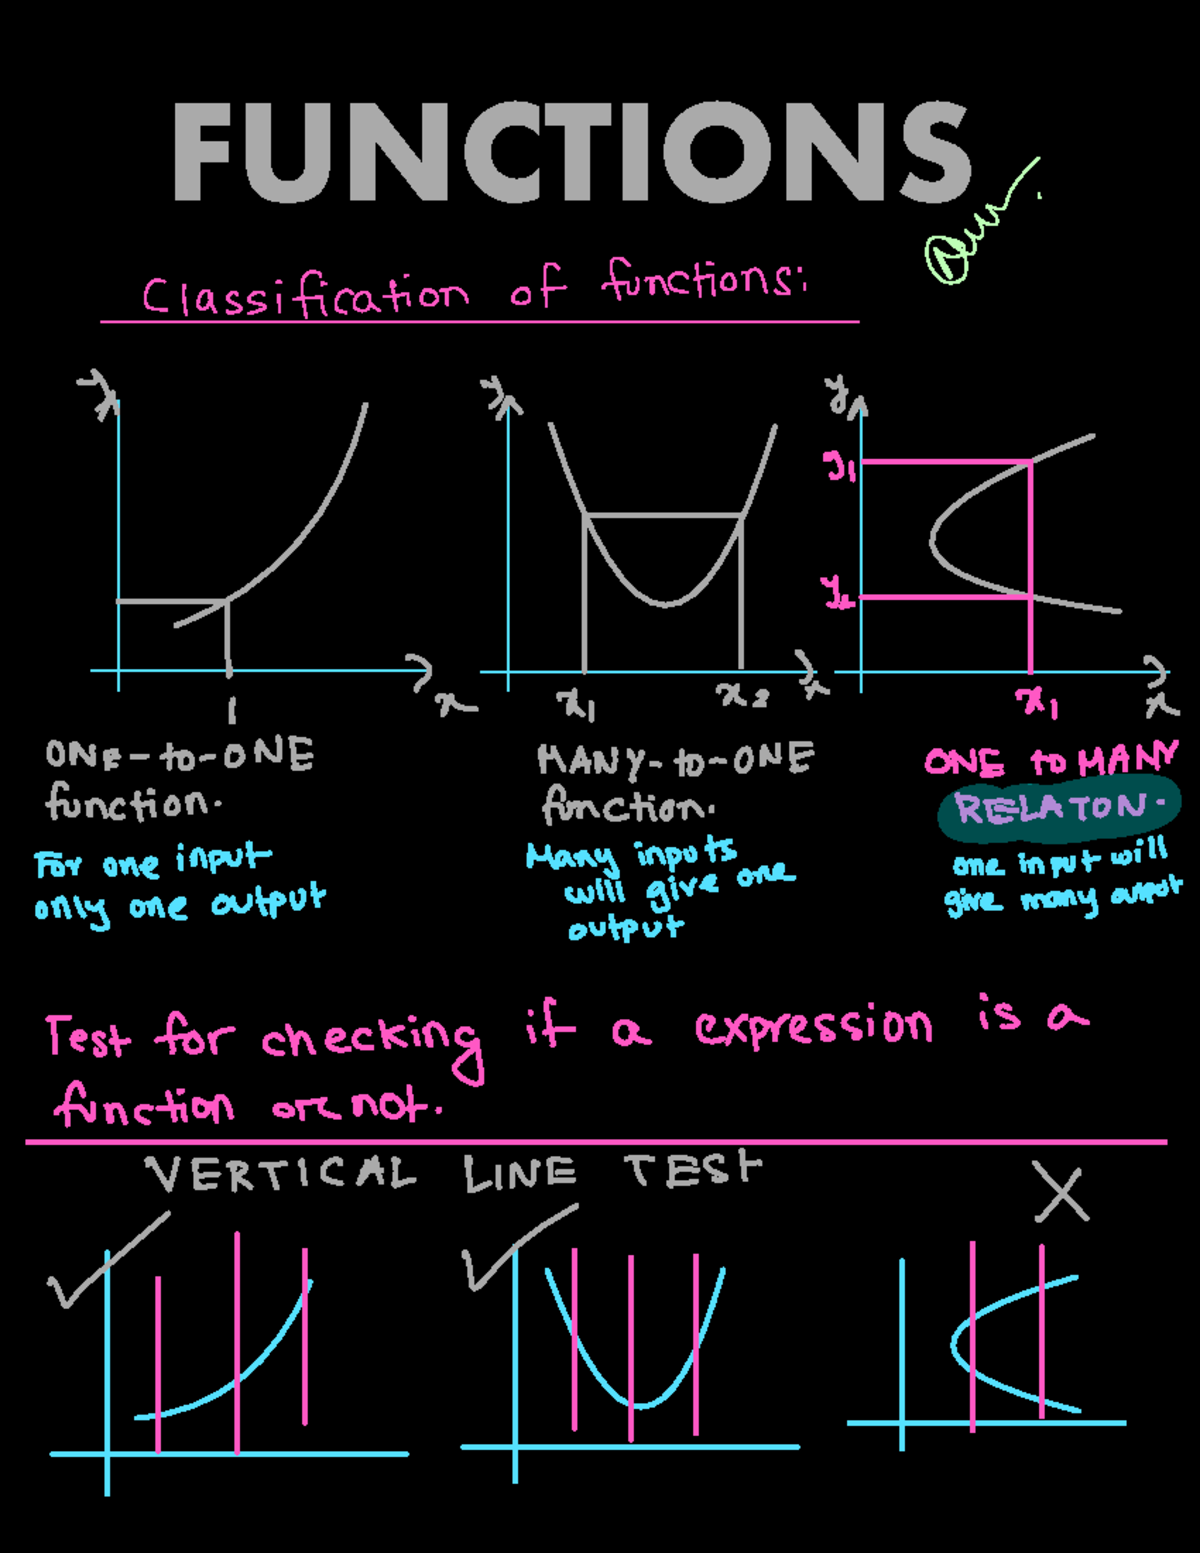 FUNCTIONS
Classification of functions:
y
y
y
y1
x1
x
x1
x2
x
x
1
ONE-to-ONE
function.
For one input
only one output
MANY-to-ONE
function.
Many inputs
will give one
output
ONE to MANY
RELATON.
one input will
give many output
Test for checking if a expression is a
function or not.
VERTICAL LINE TEST